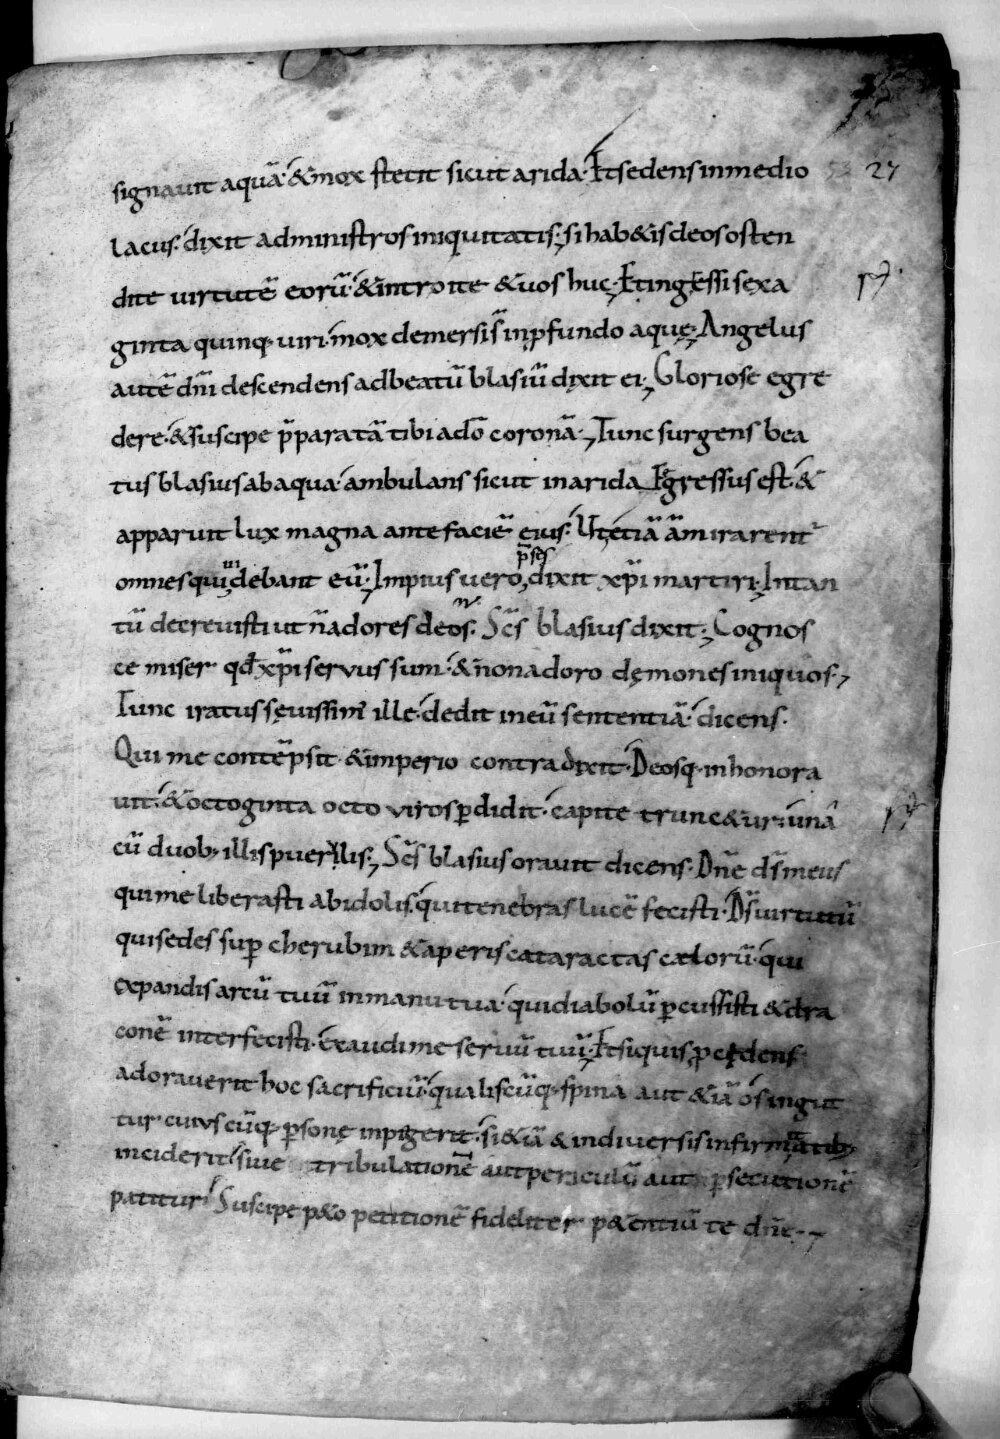 signauit aquā· &mox stetit sicut arida· Etsedens inmedio
27
lacus· dixit administros iniquitatis; si hab&is deos osten
dite uirtutē eorū· &introite &uos huc; Et ingressi sexa
ginta quinq· uiri· mox demersi s̄ inp̱fundo aquę; Angelus
autē dn̄i descendens adbeatū blasiū dixit ei; Gloriose egre
dere· &suscipe p̄paratā tibi adō coronā; Tunc surgens bea
tus blasius abaqua· ambulans sicut inarida Egressus est· &
apparuit lux magna ante faciē eius· Ut etiā āmirarent̄
omnes qui uidebant eū; Impius uero p̄ses dixit xp̄i martiri; Intan
tū decreuisti ut n̄ adores deos· Sc̄s blasius dixit; Cognos
ce miser qđ xp̄i seruus sum· &non adoro dęmones iniquos;
Tunc iratus sęuissim' ille· dedit ineū sententiā· dicens·
Qui me contēpsit· &imperio contradixit· Deosq· inhonora
uit· &octoginta octo uiros p̱didit· capite trunc&ur· unā
cū duob; illis puerilis; Sc̄s blasius orauit dicens· Dn̄e ds̄ meus
qui me liberasti abidolis· qui tenebras lucē fecisti· Ds̄ uirtutū
qui sedes sup̱ cherubim &aperis cataractas cælorū· qui
expandis arcū tuū inmanu tua· qui diabolū p̱cussisti &dra
conē interfecisti· exaudi me seruū tuū; Et siquis p̱cędens
adorauerit hoc sacrificiū· qualiscūq· spina aut &iā os ingut
tur cuiuscūq· p̱sonę inpigerit· si&iā & indiuersis infirmatib;
inciderit· siue tribulationē aut periculū aut p̱secutionē
patitur· Suscipe p&o petitionē fideliter p&entiū te dn̄e;